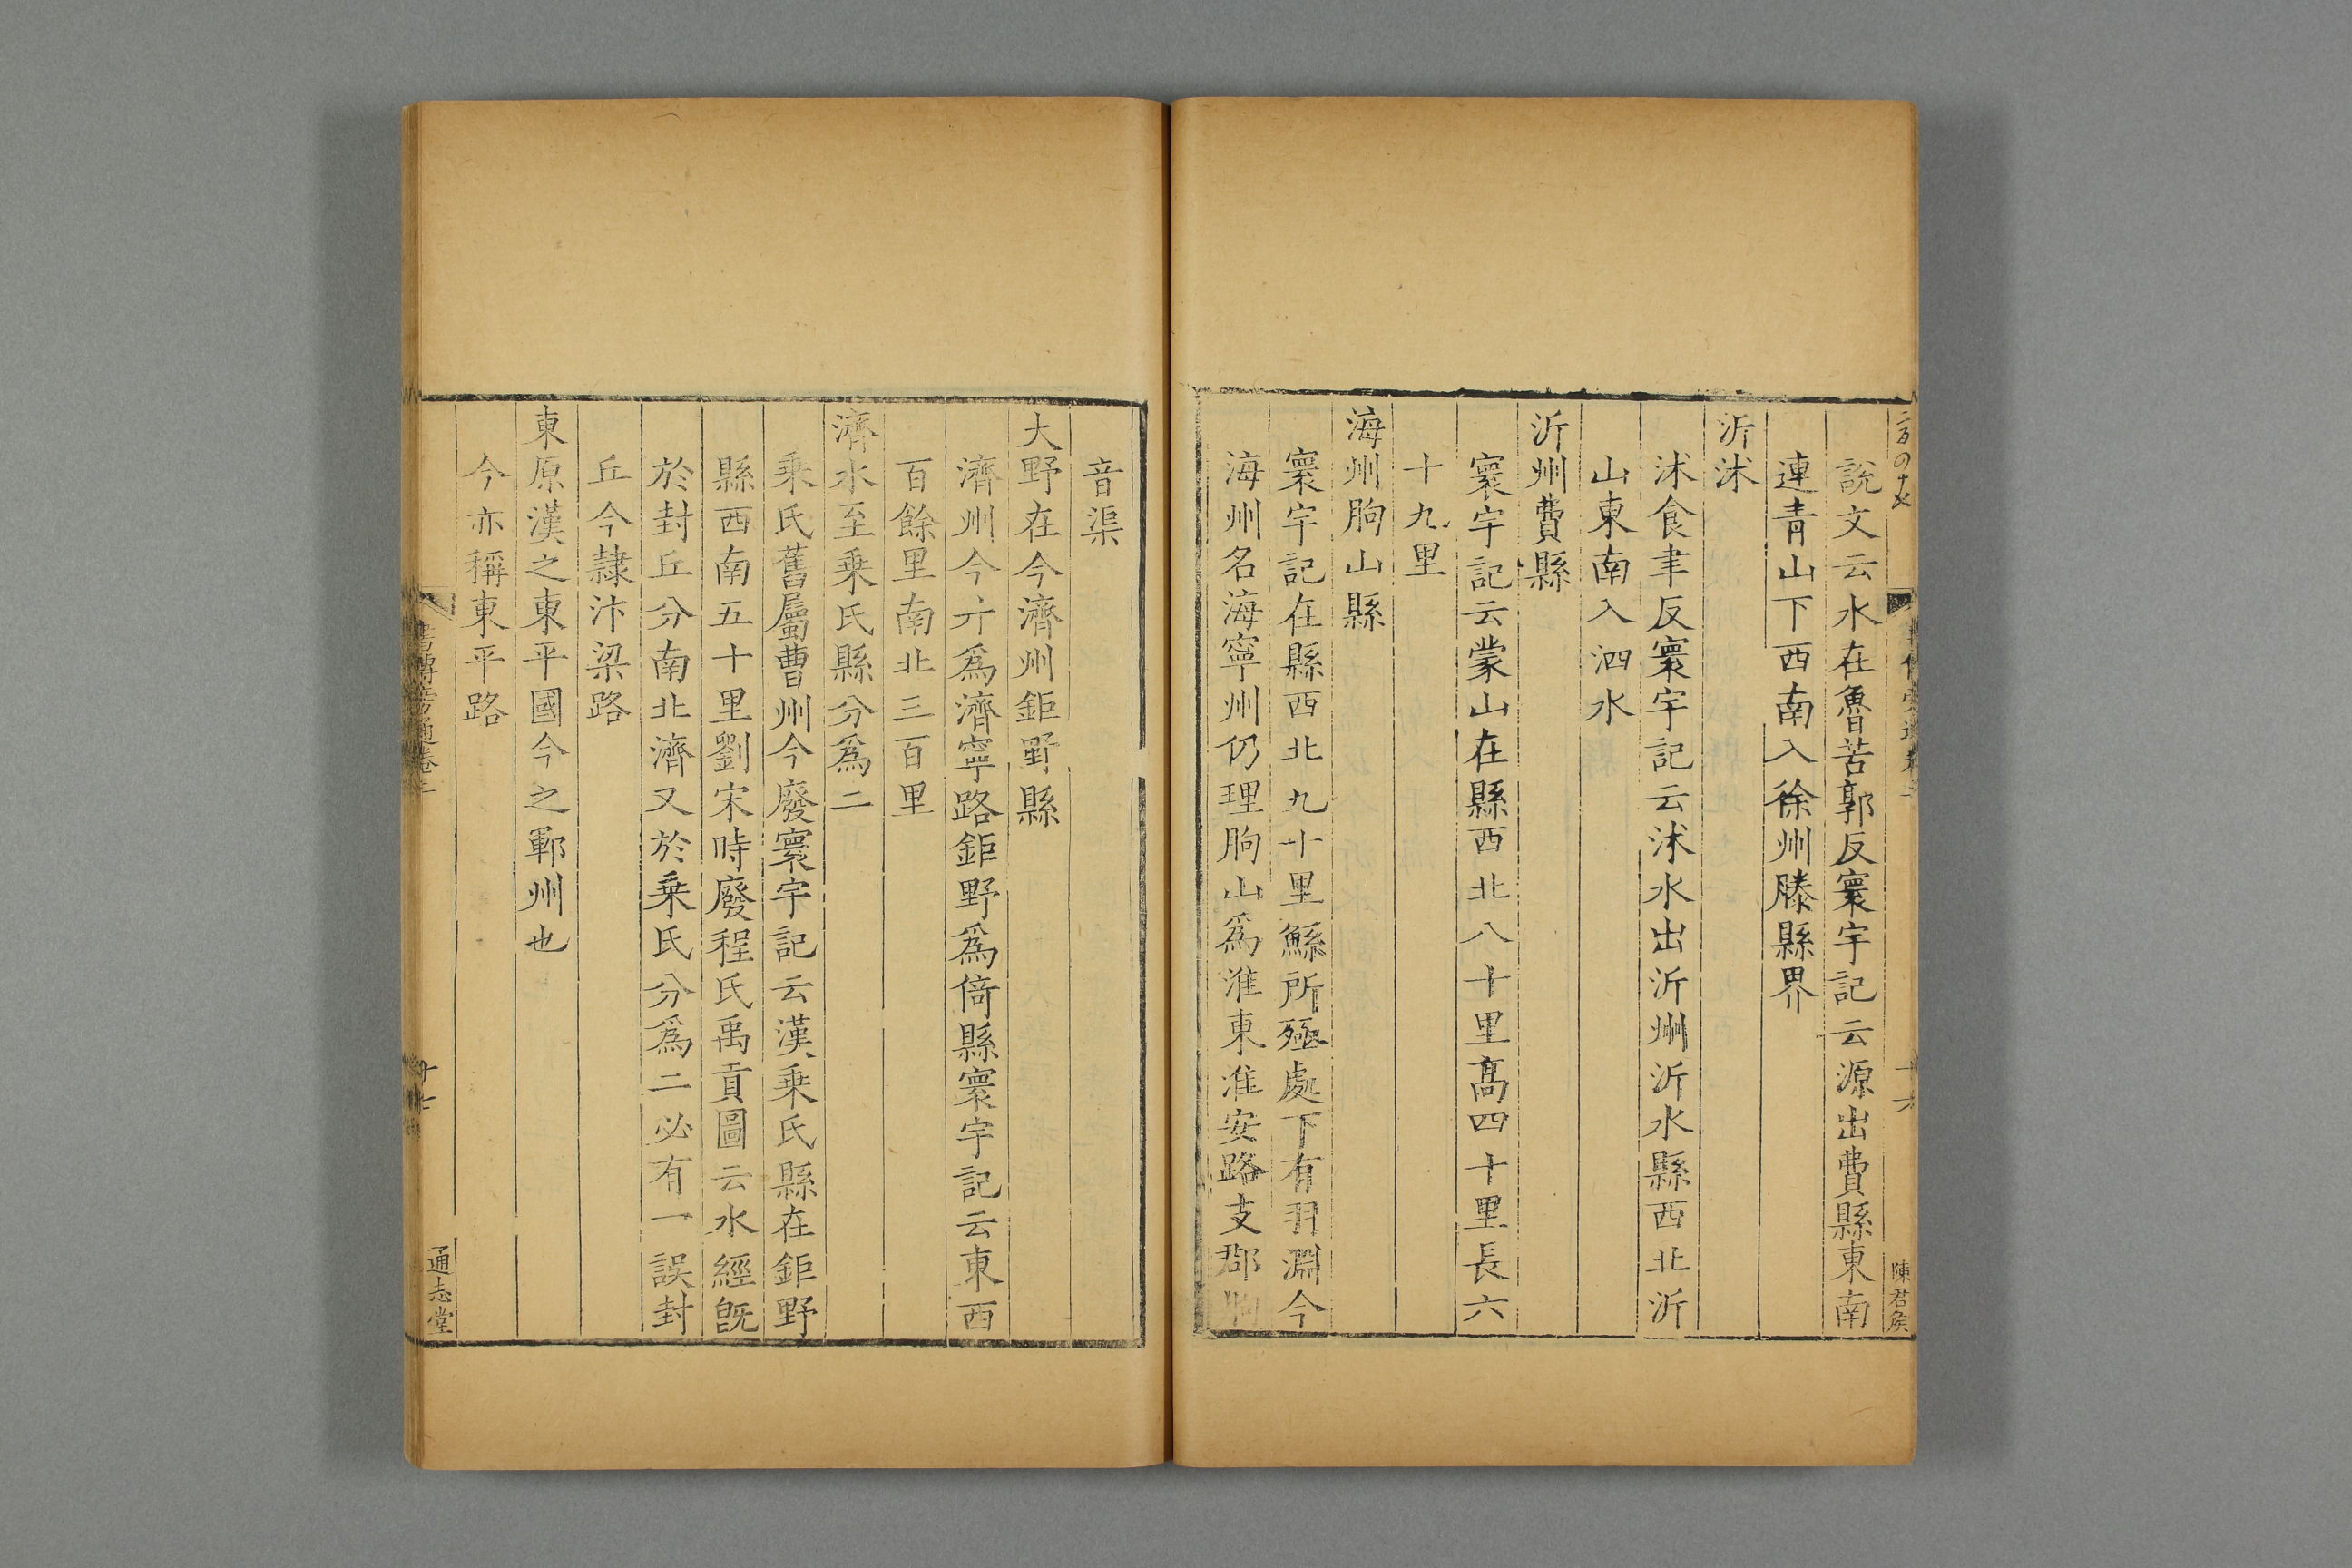 說文云水在魯苦郭反寰宇記云源出費縣東南
連青山下西南入徐州滕縣界
沂沭
沭食聿反寰宇記云沭水出沂州沂水縣西北沂
山東南入泗水
沂州費縣
寰宇記云蒙山在縣西北八十里髙四十里長六
十九里
海州朐山縣
寰宇記在縣西北九十里鯀所殛處下有羽淵今
海州名海寧州仍理朐山爲淮東淮安路支郡朐
陳君矦
音渠
大野在今濟州鉅野縣
濟州今亣爲濟寧路鉅野爲倚縣寰宇記云東西
百餘里南北三百里
濟水至乗氏縣分爲二
乗氏舊屬曹州今廢寰宇記云漢乗氏縣在鉅野
縣西南五十里劉宋時廢程氏禹貢圖云水經旣
於封丘分南北濟又於乗氏分爲二必有一誤封
丘今隷汴梁路
東原漢之東平國今之鄆州也
今亦稱東平路
書傳旁通卷二
十七
通志堂